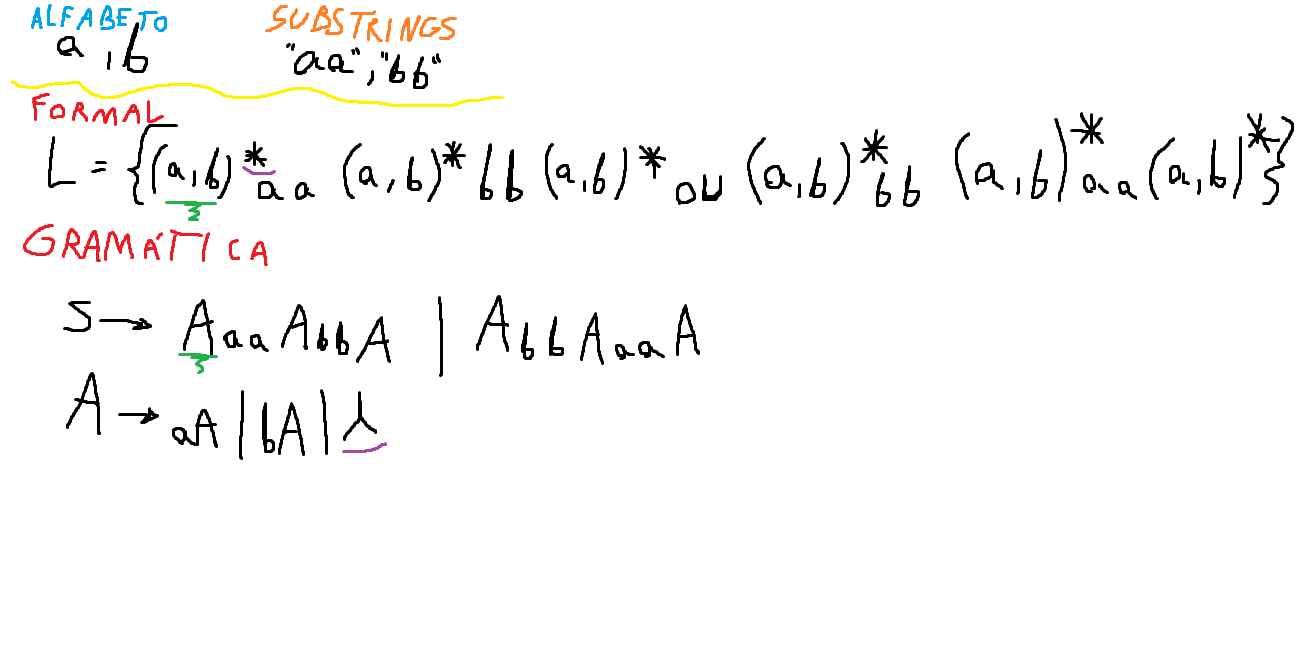 ALFABETO SUBSTRINGS
a, b "aa", "bb"
FORMAL
L = {(a,b)* aa (a,b)* bb (a,b)* ou (a,b)* bb (a,b)* aa (a,b)*}
GRAMÁTICA
S → AaaAbbA | AbbAaaA
A → aA | bA | λ